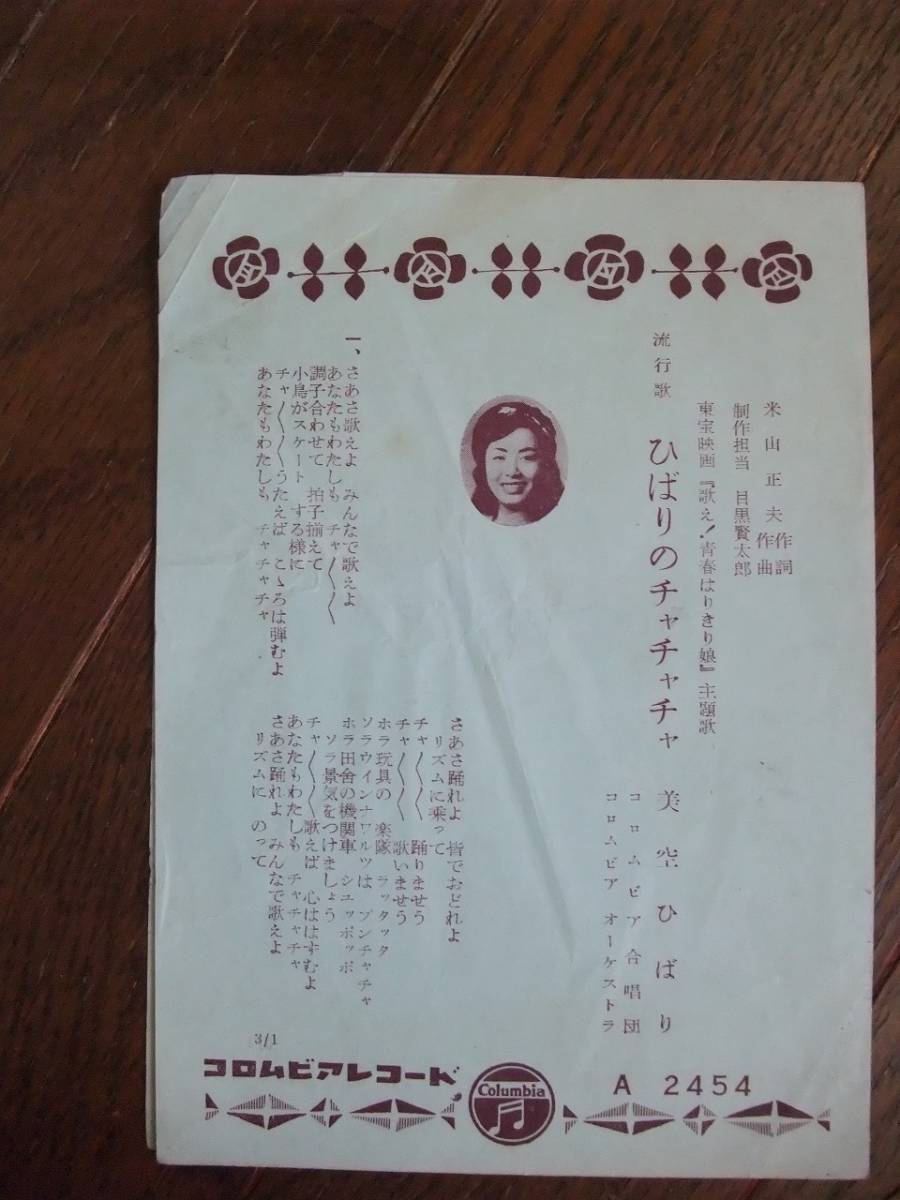 米山正夫 作詞
作曲
制作担当 目黒賢太郎
東宝映画『歌え!青春はりきり娘』主題歌
流行歌 ひばりのチャチャチャ 美空ひばり
コロムビア合唱団
コロムビア オーケストラ
一、
さあさ歌えよ みんなで歌えよ
あなたもわたしも チャ〳〵〳〵
調子合わせて 拍子揃えて
小鳥がスケート する様に
チャ〳〵〳〵うたえば こゝろは弾むよ
あなたもわたしも チャチャチャ
さあさ踊れよ 皆でおどれよ
リズムに乗って
チャ〳〵〳〵 踊りませう
チャ〳〵〳〵 歌いませう
ホラ玩具の 楽隊 ラッタッタ
ソラウインナワルツは ブンチャチャ
ホラ田舎の機関車 シュッポッポ
ソラ景気をつけましょう
チャ〳〵〳〵歌えば 心ははずむよ
あなたもわたしも チャチャチャ
さあさ踊れよ みんなで歌えよ
リズムに のって
3/1
コロムビアレコード
Columbia
A 2454